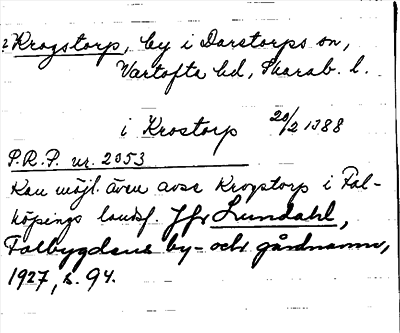 ? Krogstorp, by i Darstorps sn,
Vartofta hd, Skarab. l.
i Krostorp 20/2 1388
P.R.P. nr. 2053
Kan möjl. även avse Krogstorp i Fal-
köpings landsf. Jfr Lundahl,
Falbygdens by- och gårdnamn,
1927, s. 94.